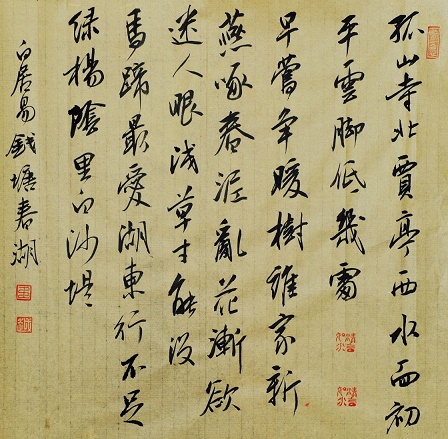 孤山寺北賈亭西水面初
平雲脚低幾處
早鶯争暖樹誰家新
燕啄春泥亂花漸欲
迷人眼浅草才能没
馬蹄最愛湖東行不足
绿楊陰里白沙堤
白居易錢塘春湖